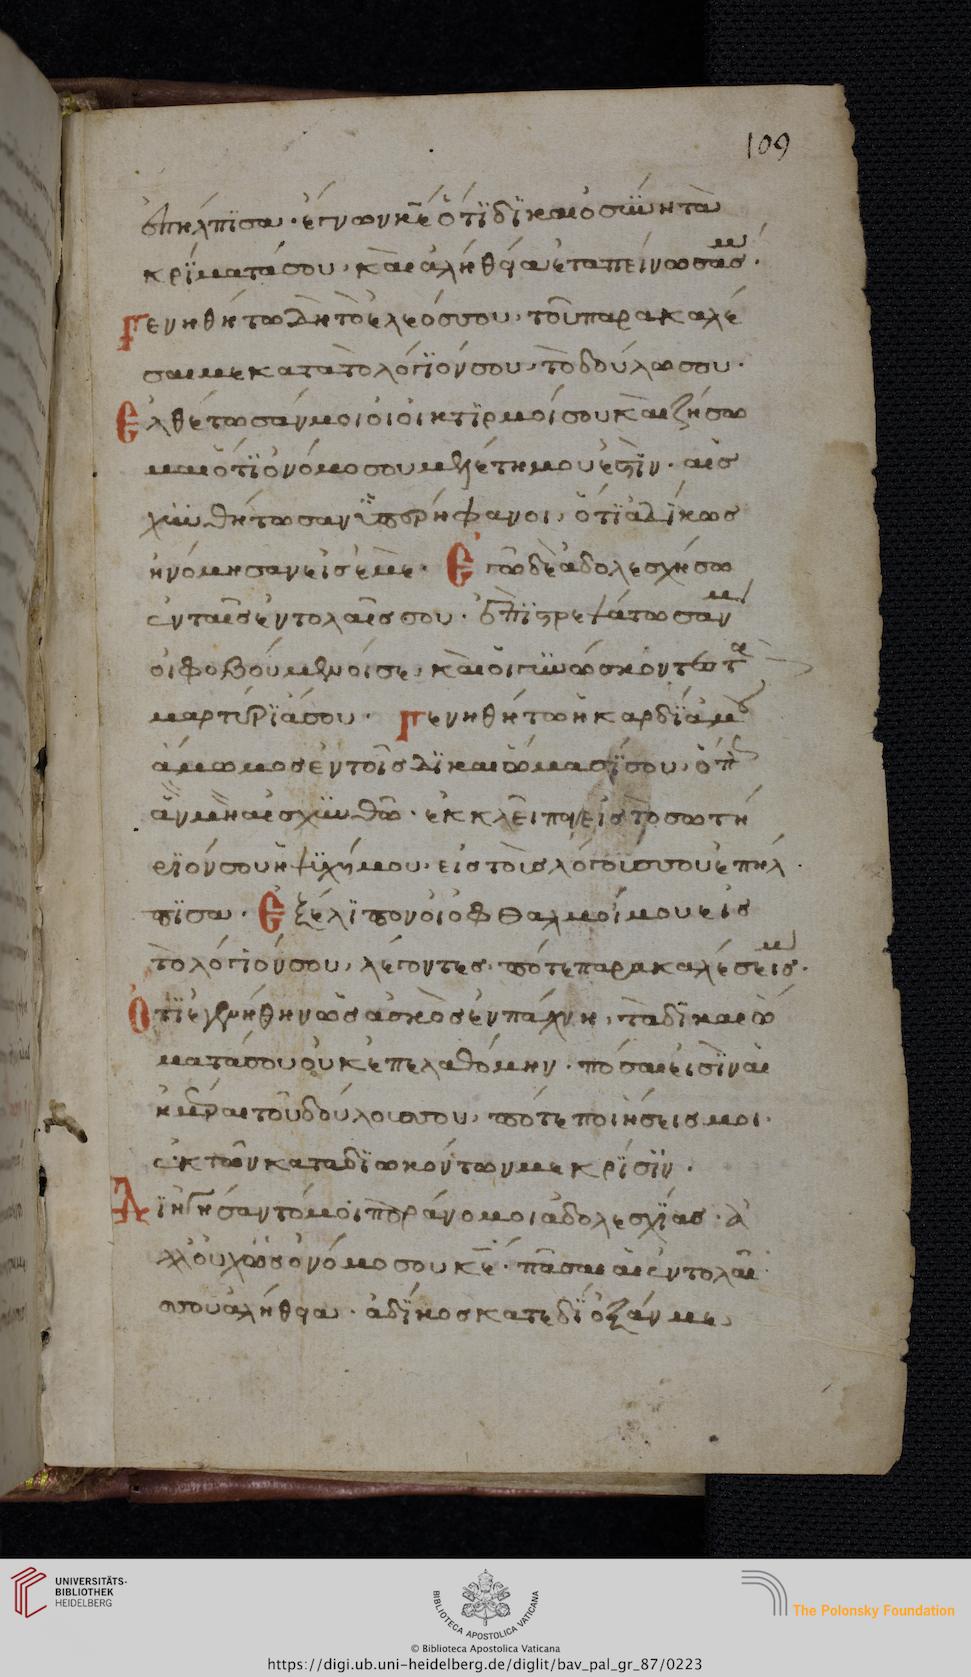 109
ἐπηλπϊσα· ἔγνων κ̅ε ὅτϊ δϊκαιοσύνη τὰ
κρΐματά σου· καὶ ἀλήθεια ἐταπείνωσάς μ·
Γενηθήτω δὴ τὸ ἔλεός σου· τοῦ παρακαλέ
σαι με κατὰ τὸ λόγϊόν σου τὸ δούλω σου·
Ἐλθέτωσάν μοι οἱ οἰκτϊρμοί σου καὶ ζήσο
μαι ὅτϊ ὁ νόμος σου μελέτη μου ἐστϊν· αἰσ
χυνθήτωσαν ὑπερήφανοι, ὅτϊ ἀδίκως
ἠνόμησαν εἰς ἐμὲ· Ἐγὼ δὲ ἀδολεσχήσω
ἐν ταῖς ἐντολαῖς σου· ἐπϊστρεψάτωσάν μ
οἱ φοβούμενοί σε, καὶ οἱ γϊνώσκοντες τ
μαρτύρϊά σου· Γενηθήτω ἡ καρδΐα μου
ἄμωμος ἐν τοῖς δϊκαιώμασΐ σου, ὅπ
ἂν μὴ αἰσχυνθῶ· ἐκκλείπει εἰς τὸ σωτή
ρϊόν σου ἡ ψϋχή μου· εἰς τοὺς λόγοϋς σου ἐπηλ
πϊσα· Ἐξέλϊπον οἱ ὀφθαλμοί μου εἰς
τὸ λόγϊόν σου, λέγοντες πότε παρακαλέσεις μ·
Ὅτϊ ἐγενήθην ὡς ἀσκὸς ἐν πάχνη, τὰ δϊκαιώ
ματά σου οὐκ ἐπελαθόμην· πόσαι εἰσϊν αἱ
ἡμέραι τοῦ δούλου σου, πότε ποιήσεις μοι
ἐκ τῶν καταδϊωκόντων με κρΐσϊν·
Δϊηγήσαντό μοι παράνομοι ἀδολεσχΐας· ἀ
λλ οὐχ ὡς ὁ νόμος σου κ̅ε· πᾶσαι αἱ ἐντολαί
σου ἀλήθεια· ἀδίκος κατεδΐοξάν με
UNIVERSITÄTS-
BIBLIOTHEK
HEIDELBERG
BIBLIOTECA APOSTOLICA VATICANA
The Polonsky Foundation
© Biblioteca Apostolica Vaticana
https://digi.ub.uni-heidelberg.de/diglit/bav_pal_gr_87/0223